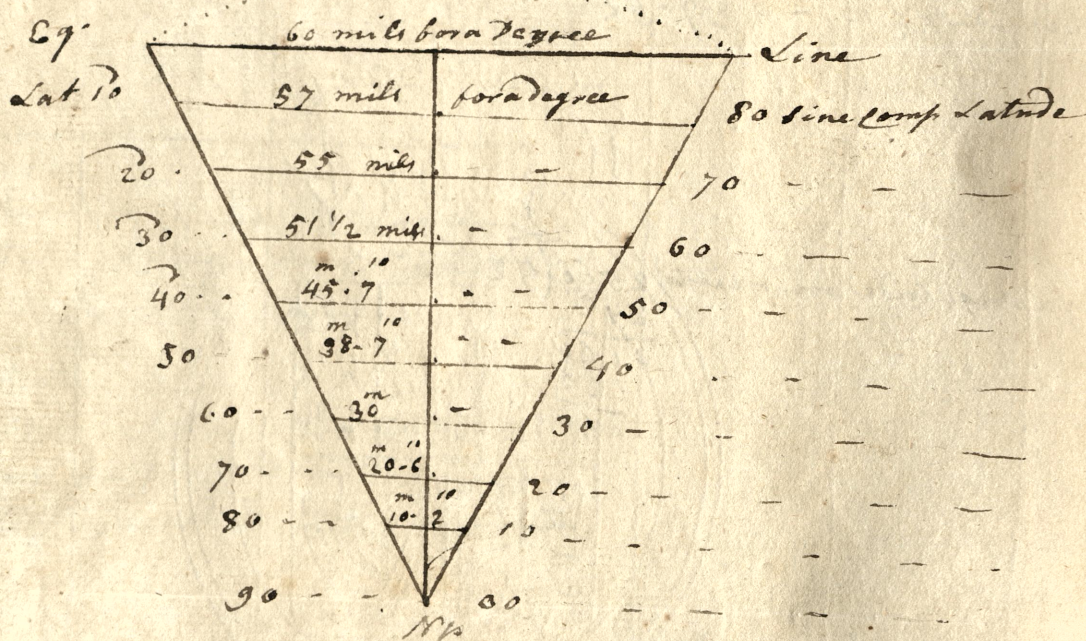 Eq. 60 mils for a Degree Line
Lat 10 57 mils for a degree 80 Sine Comp Latude
20 55 mils 70
30 51 1/2 mils 60
40 m 45.7 10 50
50 m 38-7 10 40
60 m 30 30
70 m 20-6 10 20
80 m 10-2 10 10
90 00
Np